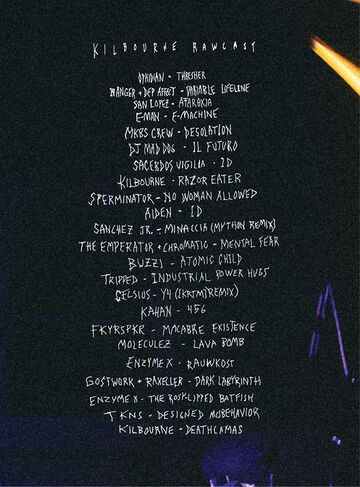 KILBOURNE RAWCAST
OPHIDIAN - THRESHER
RANGER + DEP AFFECT - VARIABLE LIFELINE
SAN LOPEZ - ATARAXIA
E-MAN - E-MACHINE
MKBS CREW - DESOLATION
DJ MAD DOG - IL FUTURO
SACERDOS VIGILIA - ID
KILBOURNE - RAZOR EATER
SPERMINATOR - NO WOMAN ALLOWED
AIDEN - ID
SANCHEZ JR. - MINACCIA (MYTHON REMIX)
THE EMPERATOR + CHROMATIC - MENTAL FEAR
BUZZI - ATOMIC CHILD
TRIPPED - INDUSTRIAL POWER HUGS
CELSIUS - Y4 (IKRTM) REMIX)
KAHAN - 456
FKYRSPKR - MACABRE EXISTENCE
MOLECULEZ - LAVA BOMB
ENZYME X - RAUWKOST
GOSTWORK + RAXELLER - DARK LABYRINTH
ENZYME X - THE ROSKLIPPED BATFISH
TKNS - DESIGNED MISBEHAVIOR
KILBOURNE - DEATHCAMAS